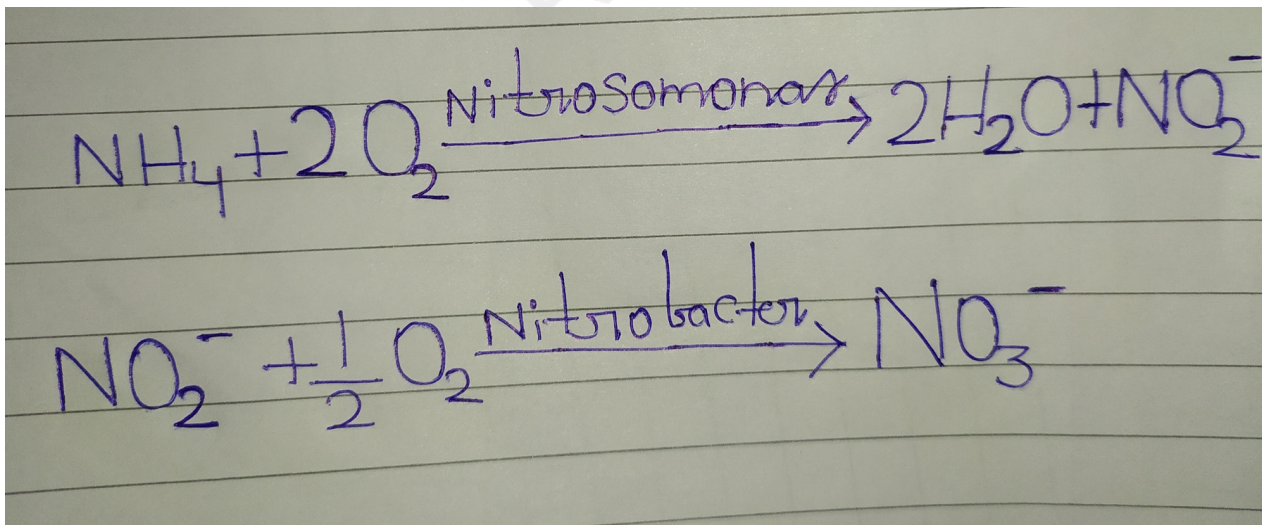 NH₄+2O₂ Nitrosomonas→ 2H₂O+NO₂⁻
NO₂⁻ +1/2 O₂ Nitrobacter→ NO₃⁻